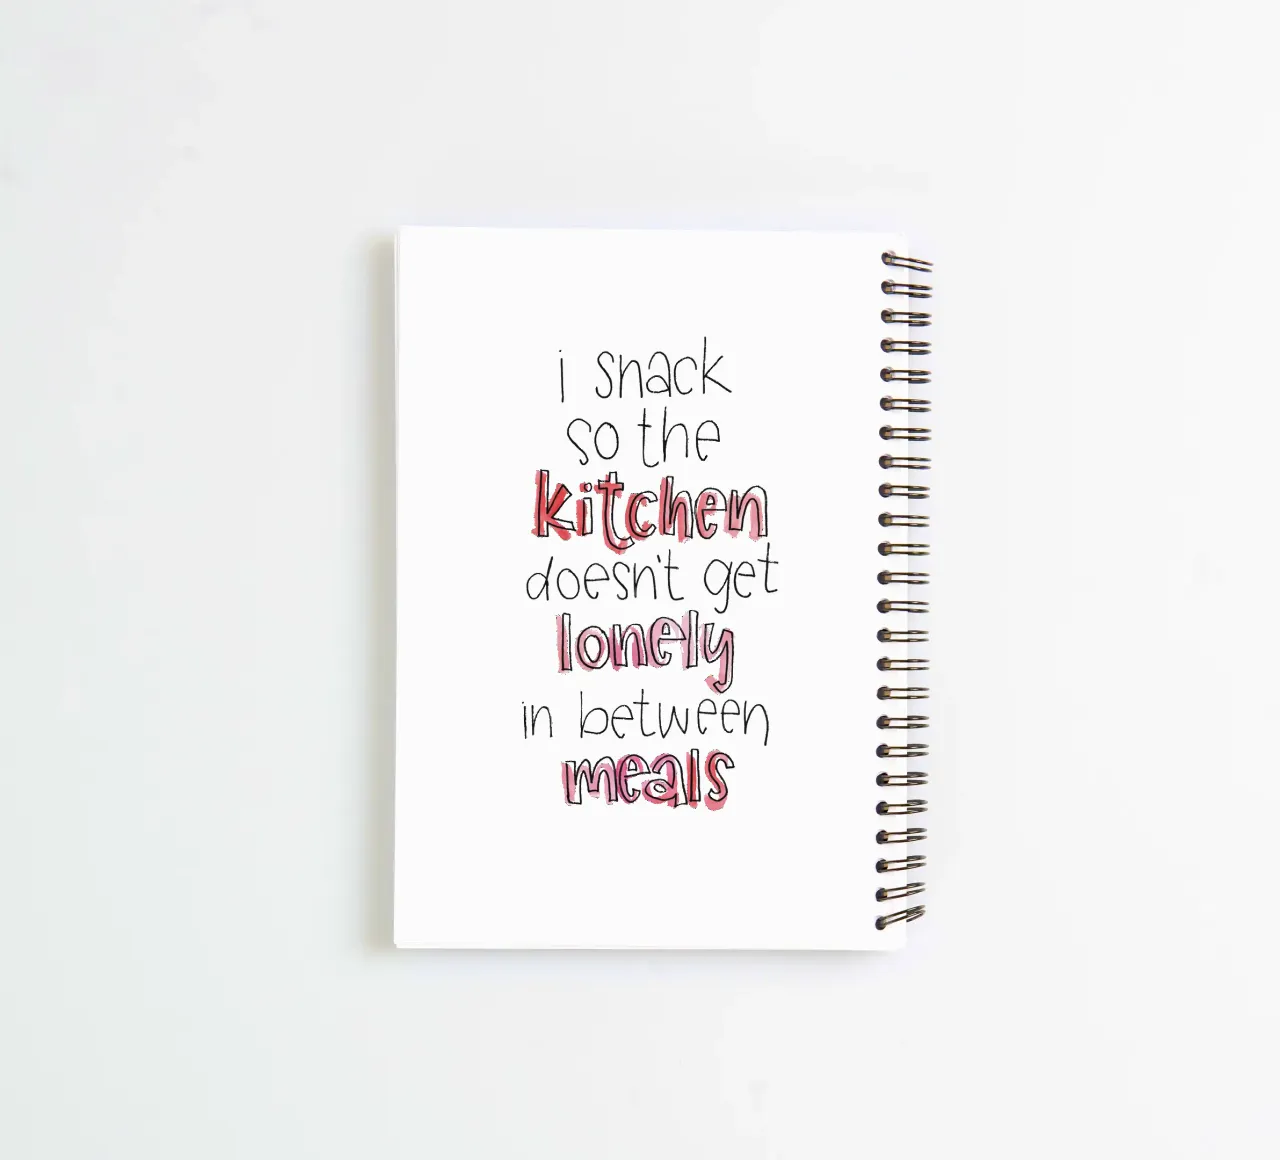 i snack
so the
kitchen
doesn't get
lonely
in between
meals